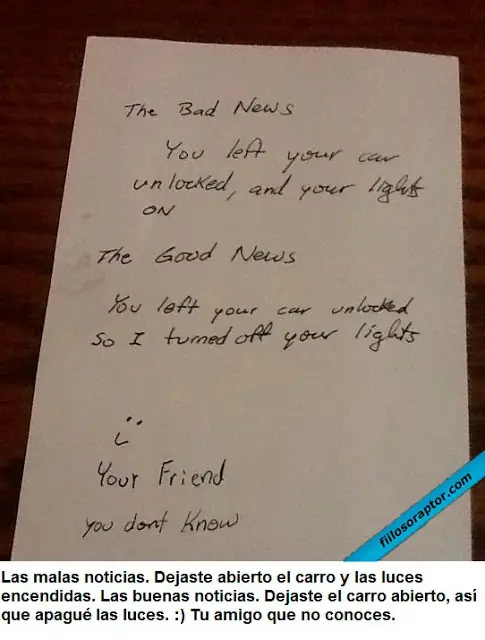 The Bad News
You left your car
unlocked, and your lights
ON
The Good News
You left your car unlocked
so I turned off your lights
Your Friend
you dont Know
fiilosoraptor.com
Las malas noticias. Dejaste abierto el carro y las luces
encendidas. Las buenas noticias. Dejaste el carro abierto, así
que apagué las luces. :) Tu amigo que no conoces.